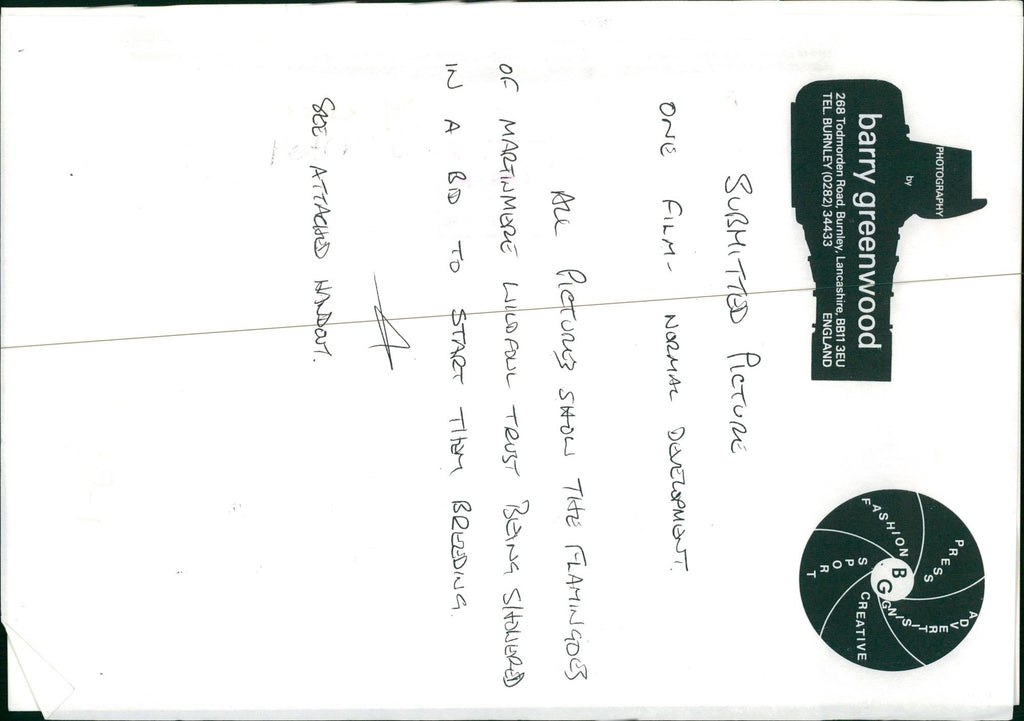 PHOTOGRAPHY
by
barry greenwood
268 Todmorden Road, Burnley, Lancashire, BB11 3EU
TEL. BURNLEY (0282) 34433 ENGLAND
PRESS
ADVERTISING
CREATIVE
SPORT
FASHION
BG
SUBMITTED PICTURE
ONE FILM - NORMAL DEVELOPMENT.
ALL PICTURES SHOW THE FLAMINGOES
OF MARTINMERE WILDFOWL TRUST BEING SHOWERED
IN A BID TO START THEM BREEDING.
SEE ATTACHED HANDOUT.